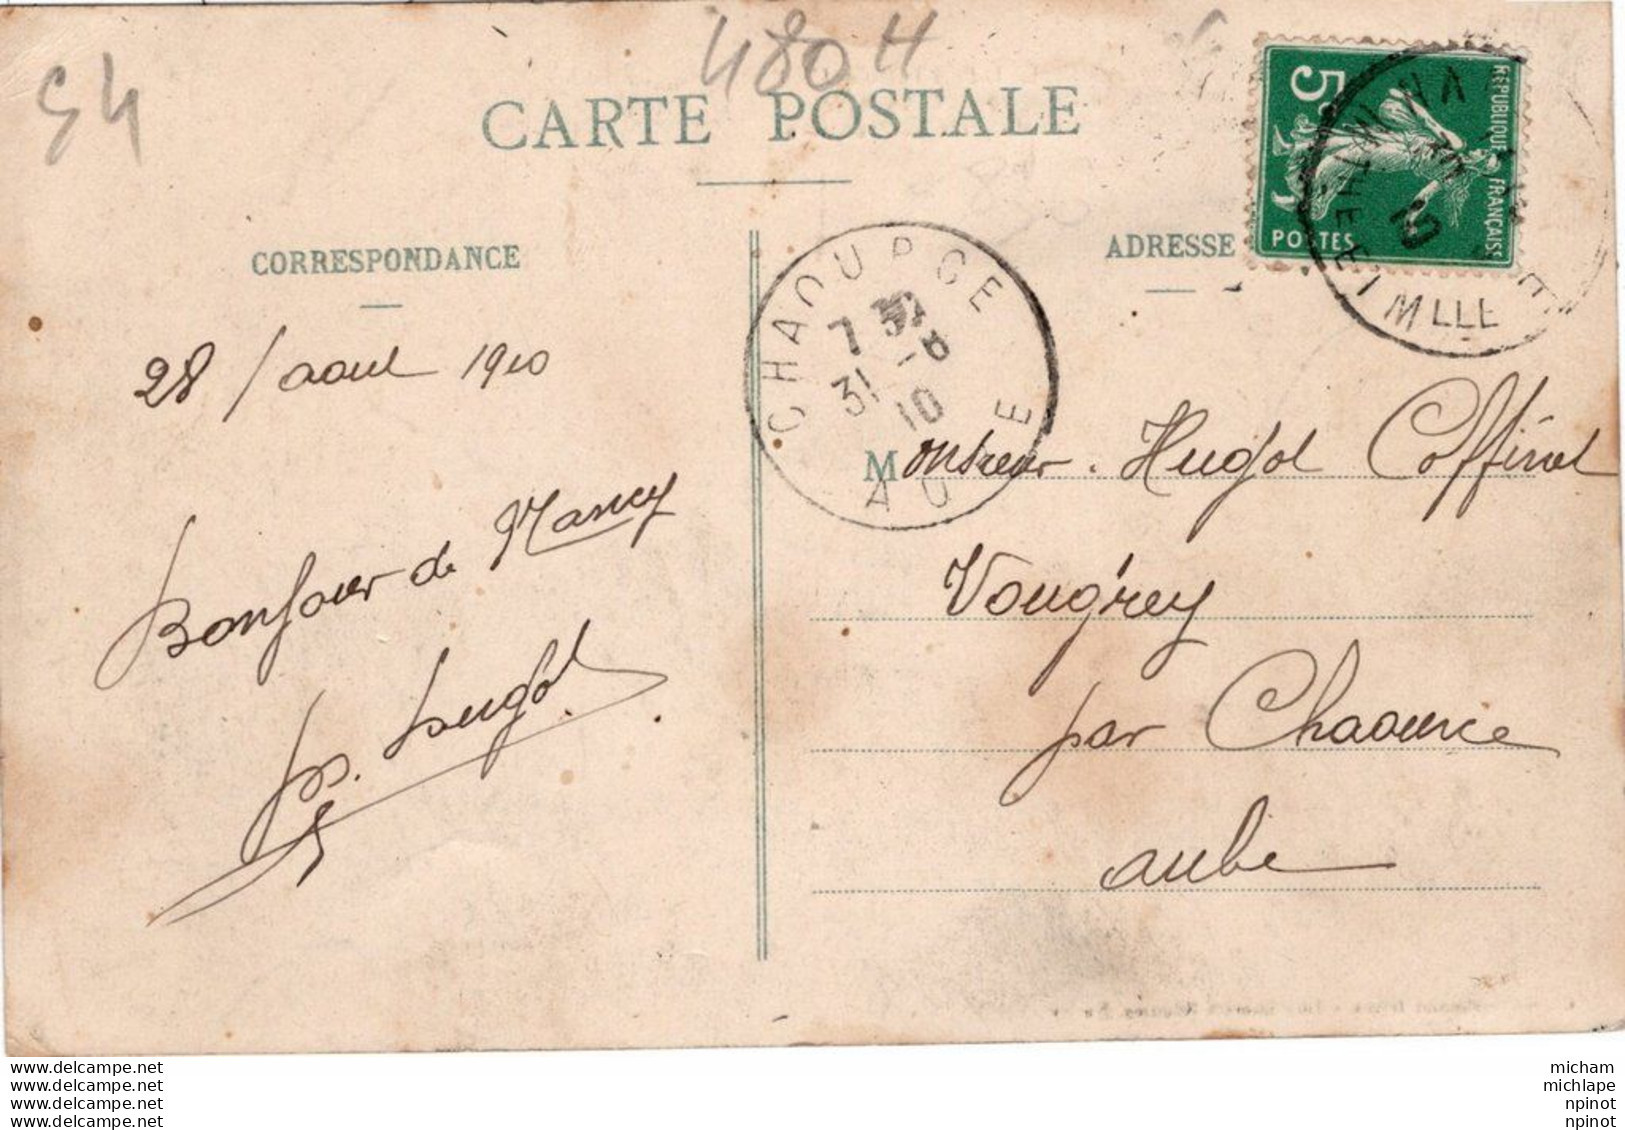 54
480 H
CARTE POSTALE
CORRESPONDANCE
ADRESSE
RÉPUBLIQUE FRANÇAISE
5c
POSTES
CHAOURCE
7 30
31 - 8
10
AUBE
MLLE
28 / aout 1910
Bonjour de Nancy
Hugol
Monsieur. Hugol Coffinet
Vougrey
par Chaource
aube
www.delcampe.net
www.delcampe.net
www.delcampe.net
www.delcampe.net
micham
michlape
npinot
npinot